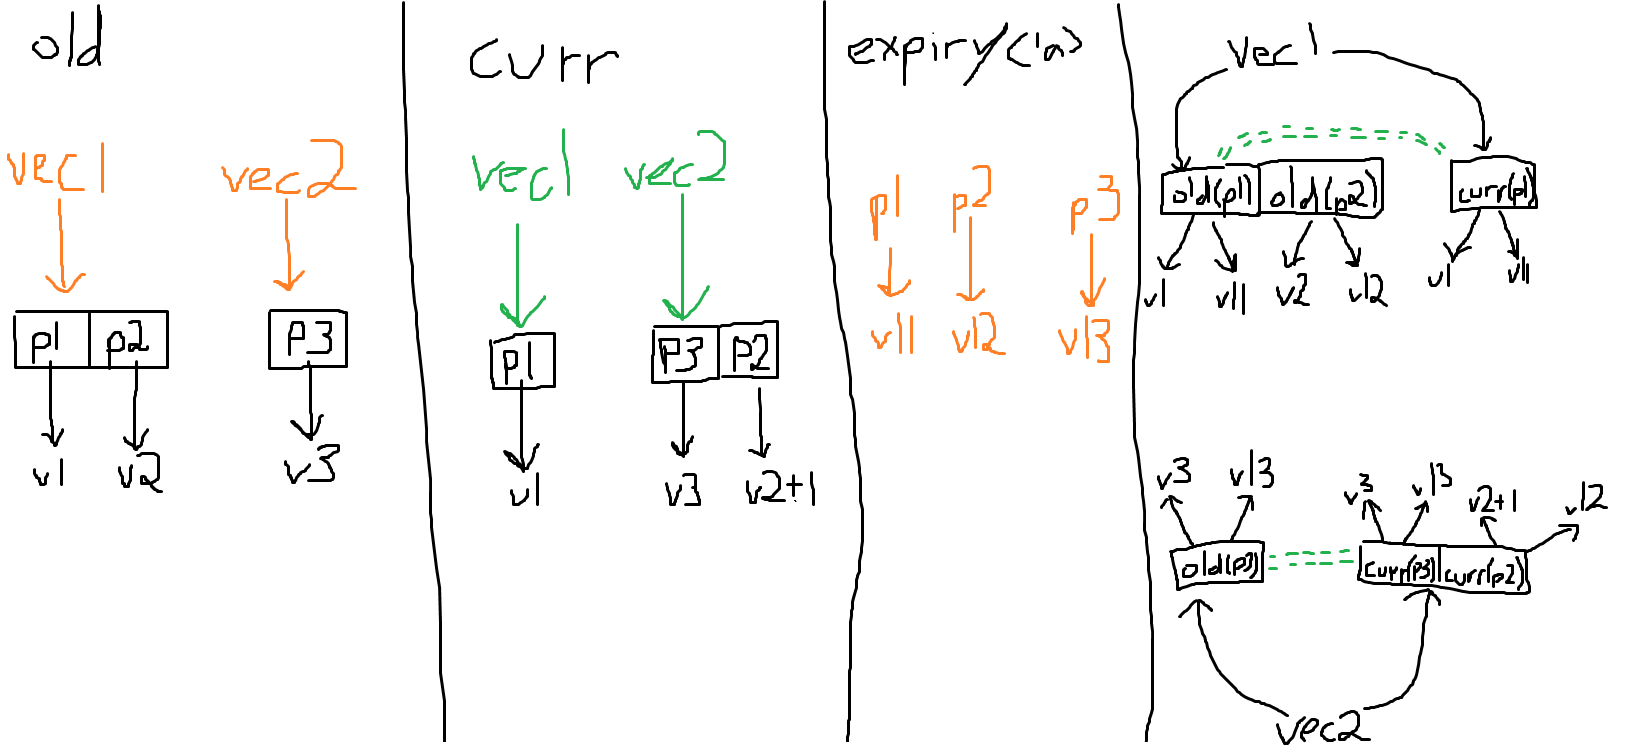 old
vec1 vec2
p1 p2 p3
v1 v2 v3
curr
vec1 vec2
p1 p3 p2
v1 v3 v2+1
expiry<'a>
p1 p2 p3
v11 v12 v13
vec1
old(p1) old(p2) curr(p1)
v1 v11 v2 v12 v1 v11
v3 v13 v3 v13 v2+1 v12
old(p3) curr(p3) curr(p2)
vec2